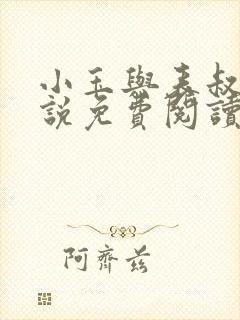 小玉與表叔
說免費閱讀
阿齊茲